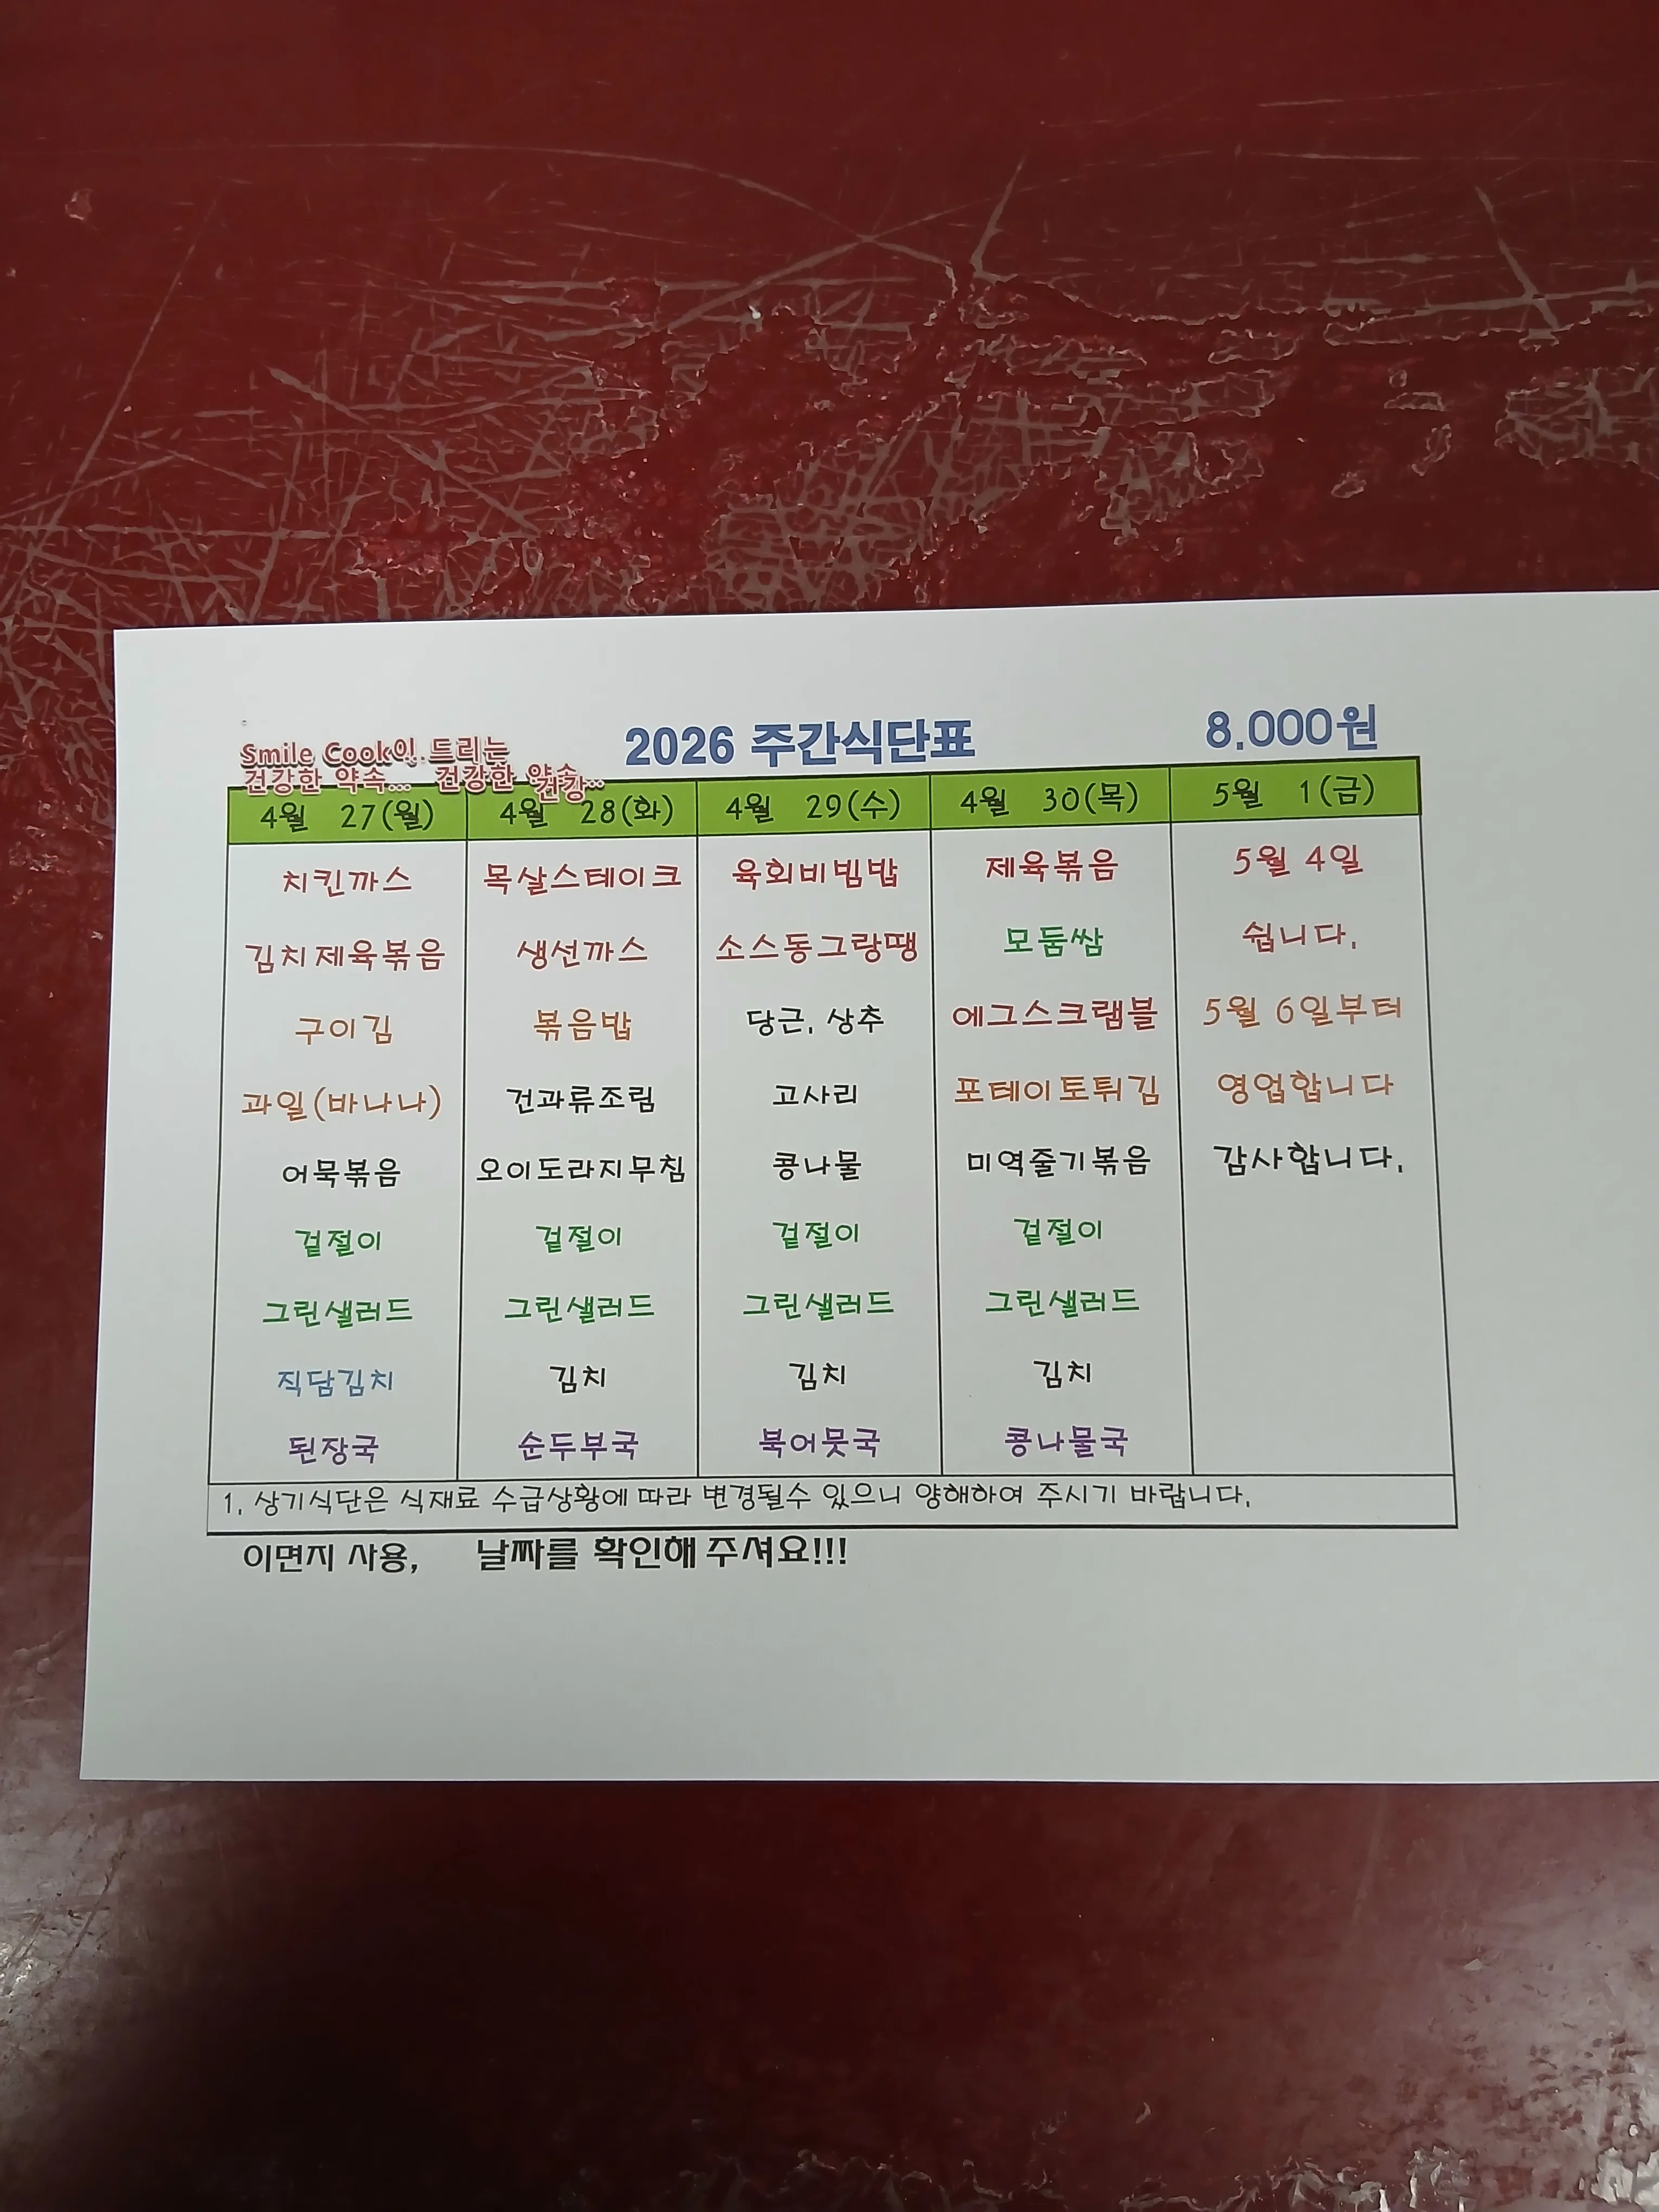 2026 주간식단표 8.000원
Smile Cook이 드리는
건강한 약속... 건강한 약속...
건강
4월 27(월) 4월 28(화) 4월 29(수) 4월 30(목) 5월 1(금)
치킨까스 목살스테이크 육회비빔밥 제육볶음 5월 4일
김치제육볶음 생선까스 소스동그랑땡 모둠쌈 쉽니다.
구이김 볶음밥 당근, 상추 에그스크램블 5월 6일부터
과일(바나나) 건과류조림 고사리 포테이토튀김 영업합니다
어묵볶음 오이도라지무침 콩나물 미역줄기볶음 감사합니다.
겉절이 겉절이 겉절이 겉절이
그린샐러드 그린샐러드 그린샐러드 그린샐러드
직담김치 김치 김치 김치
된장국 순두부국 북어뭇국 콩나물국
1. 상기식단은 식재료 수급상황에 따라 변경될수 있으니 양해하여 주시기 바랍니다.
이면지 사용, 날짜를 확인해 주셔요!!!